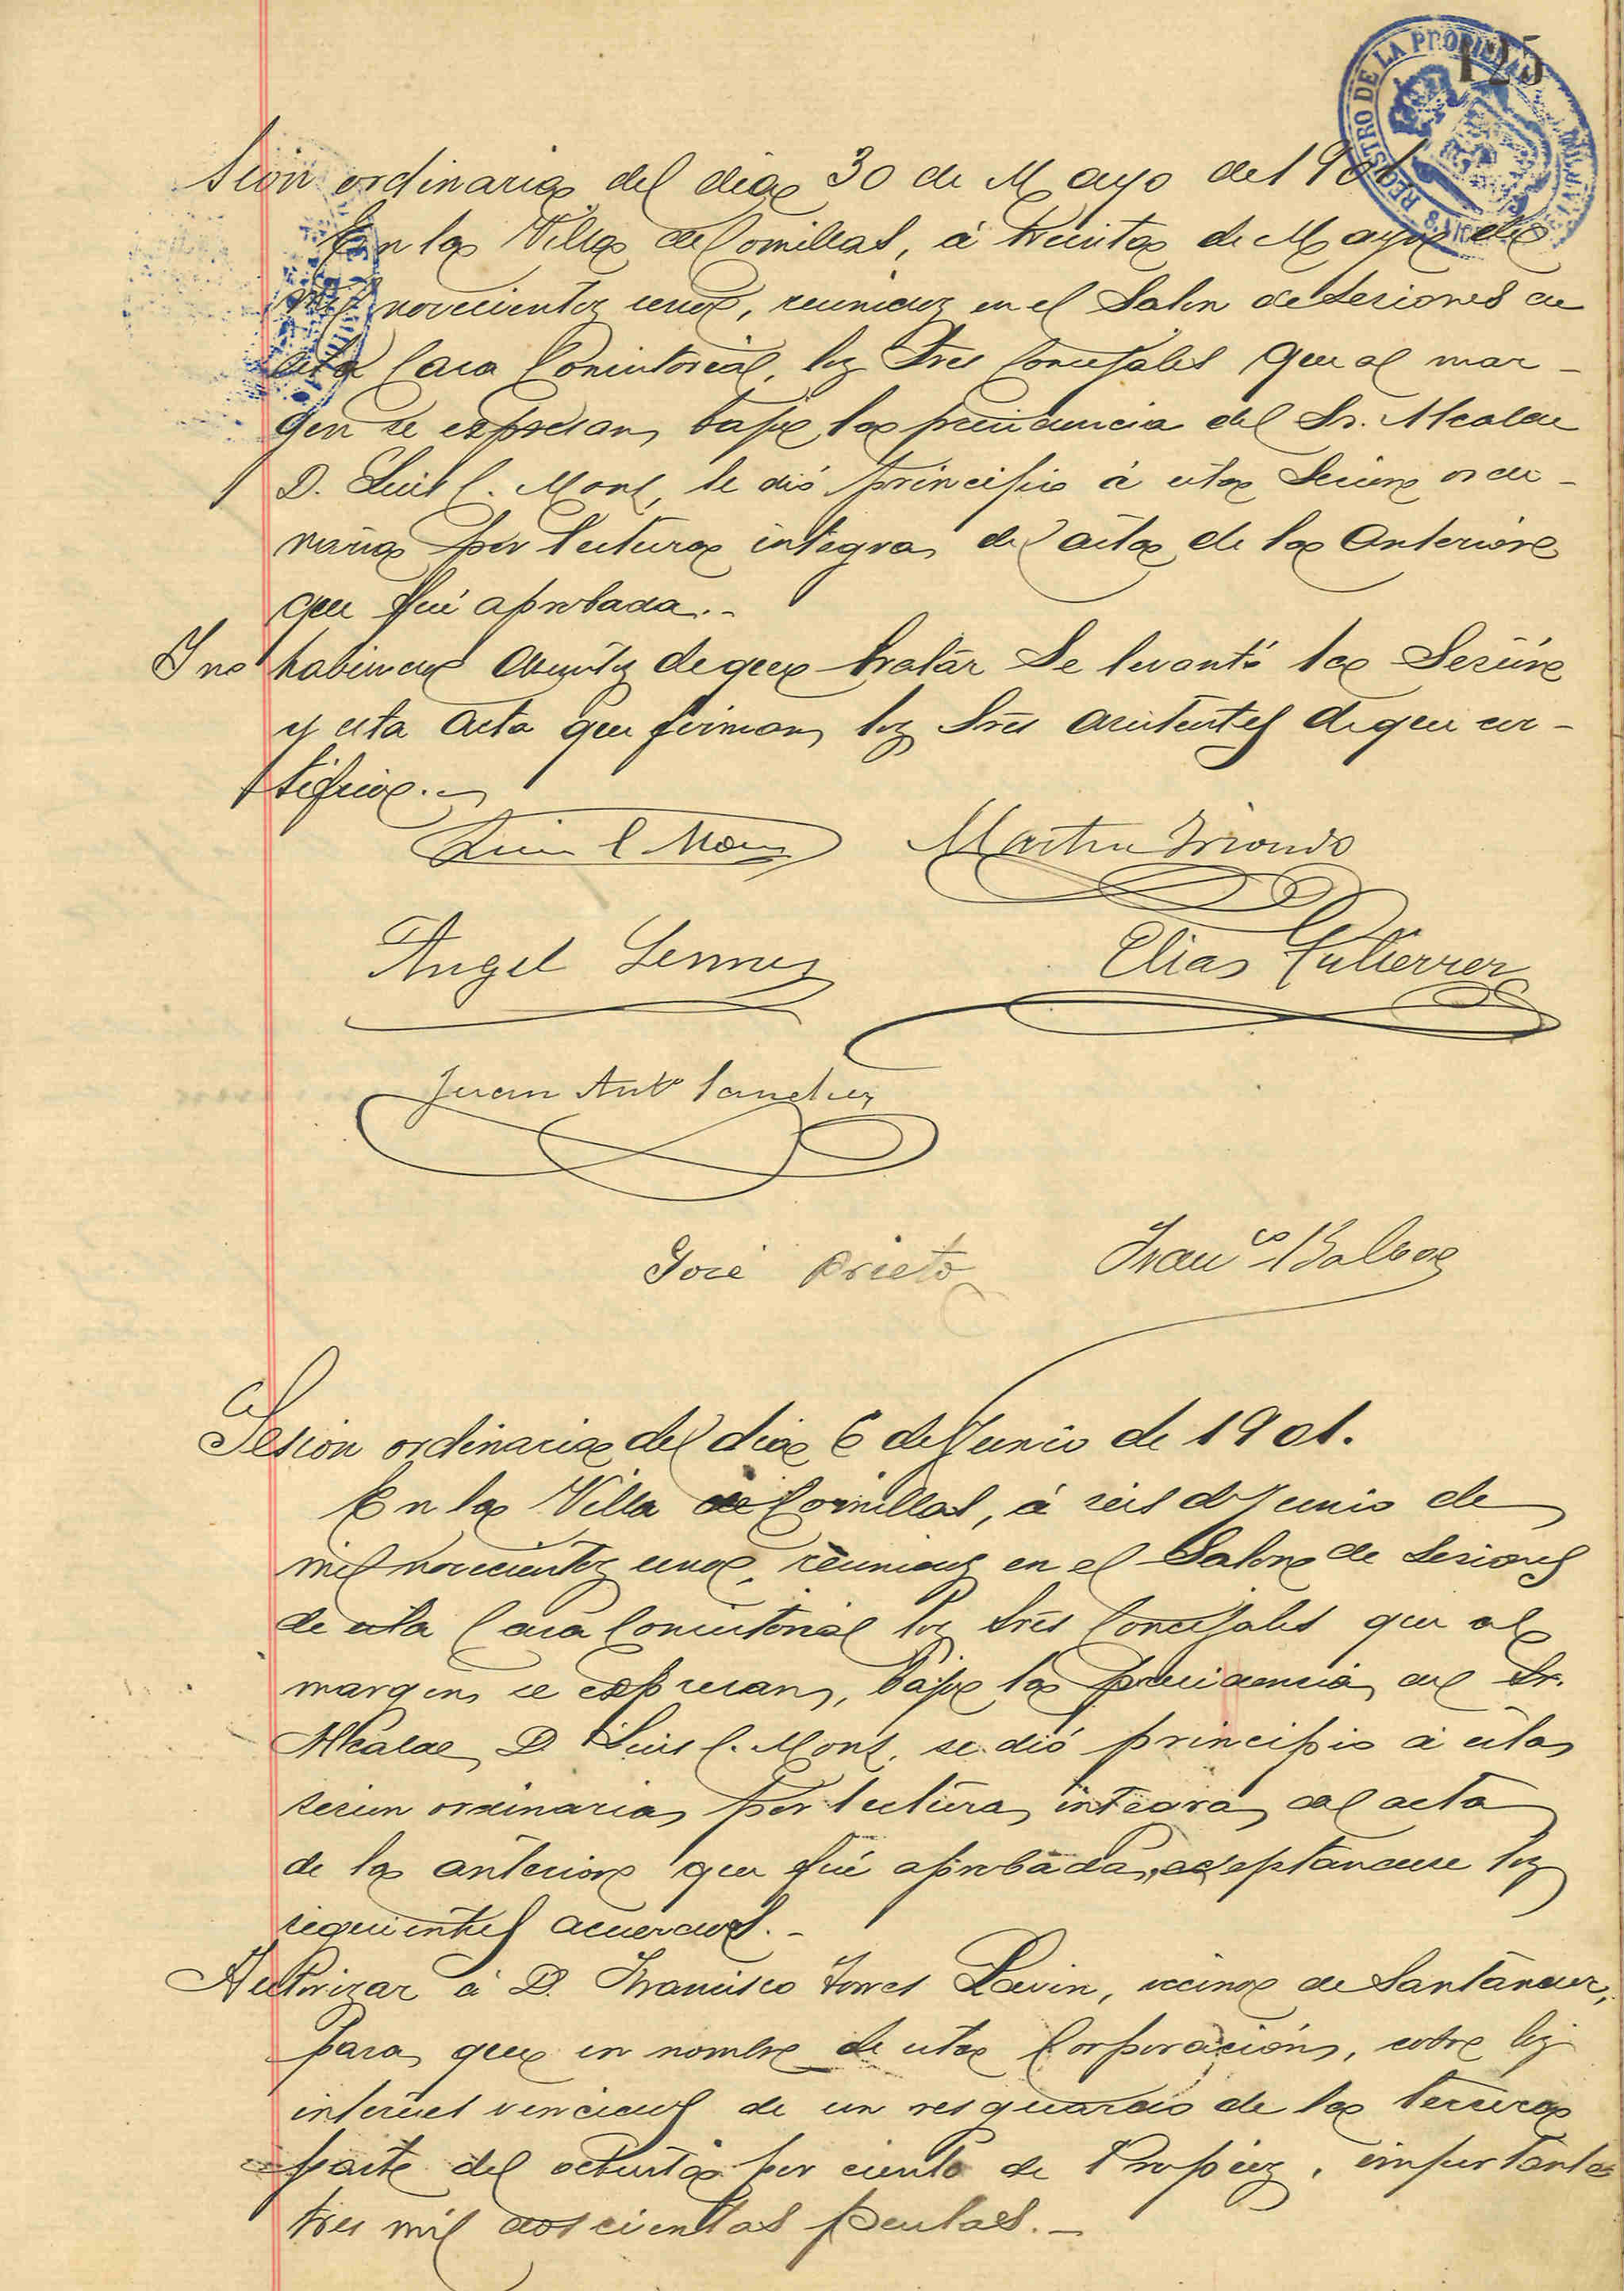 125
REGISTRO DE LA PROPIEDAD
Sesion ordinaria del dia 30 de Mayo de 1901
En la Villa de Comillas, á treinta de Mayo de
mil novecientos uno, reunidos en el Salon de Sesiones de
esta Casa Consistorial, los Sres Concejales que al mar-
gen se expresan, bajo la presidencia del Sr. Alcalde
D. Luis C. Mons, se dió principio á esta Sesion ordi-
naria por lectura integra del acta de la anterior
que fué aprobada.-
Y no habiendo asuntos de que tratar se levantó la Sesión
y esta acta que firman los Sres asistentes de que cer-
tifico.-
Luis C Mons Martin
Angel Elias Gutierrez
Juan Antº Sanchez
José Prieto Franco
Sesion ordinaria del dia 6 de Junio de 1901.
En la Villa de Comillas, á seis de Junio de
mil novecientos uno, reunidos en el Salon de Sesiones
de esta Casa Consistorial los Sres Concejales que al
margen se expresan, bajo la presidencia del Sr.
Alcalde D. Luis C. Mons, se dió principio á esta
sesion ordinaria por lectura integra del acta
de la anterior que fué aprobada, adeptandose los
siguientes acuerdos.-
Autorizar á D. Francisco Torres vecino de Santander,
para que en nombre de esta Corporación, cobre los
intereses vencidos de un resguardo de la tercera
parte del ochenta por ciento de Propios, importante
tres mil doscientas pesetas.-